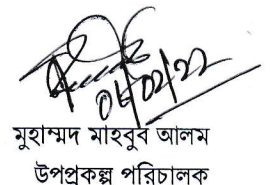 ০৮/০২/২২
মুহাম্মদ মাহবুব আলম
উপপ্রকল্প পরিচালক